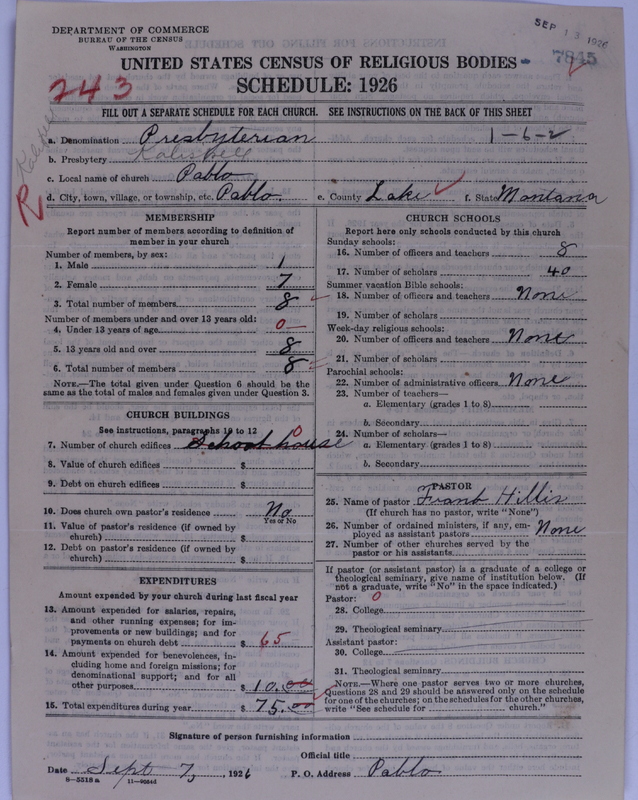 DEPARTMENT OF COMMERCE
BUREAU OF THE CENSUS
WASHINGTON
SEP 13 1926
7845
UNITED STATES CENSUS OF RELIGIOUS BODIES
243
SCHEDULE: 1926
FILL OUT A SEPARATE SCHEDULE FOR EACH CHURCH. SEE INSTRUCTIONS ON THE BACK OF THIS SHEET
Kalispell
R
a. Denomination Presbyterian 1-6-2
b. Presbytery Kalispell
c. Local name of church Pablo
d. City, town, village, or township, etc. Pablo. e. County Lake f. State Montana
MEMBERSHIP
Report number of members according to definition of
member in your church
Number of members, by sex:
1. Male 1
2. Female 7
3. Total number of members 8
Number of members under and over 13 years old:
4. Under 13 years of age 0
5. 13 years old and over 8
6. Total number of members 8
NOTE.—The total given under Question 6 should be the
same as the total of males and females given under Question 3.
CHURCH BUILDINGS
See instructions, paragraphs 10 to 12
7. Number of church edifices School house 0
8. Value of church edifices $
9. Debt on church edifices $
10. Does church own pastor's residence No
Yes or No
11. Value of pastor's residence (if owned by
church) $
12. Debt on pastor's residence (if owned by
church) $
EXPENDITURES
Amount expended by your church during last fiscal year
13. Amount expended for salaries, repairs,
and other running expenses; for im-
provements or new buildings; and for
payments on church debt $ 65
14. Amount expended for benevolences, in-
cluding home and foreign missions; for
denominational support; and for all
other purposes $ 10.00
15. Total expenditures during year $ 75.00
CHURCH SCHOOLS
Report here only schools conducted by this church
Sunday schools:
16. Number of officers and teachers 8
17. Number of scholars 40
Summer vacation Bible schools:
18. Number of officers and teachers None
19. Number of scholars
Week-day religious schools:
20. Number of officers and teachers None
21. Number of scholars
Parochial schools:
22. Number of administrative officers None
23. Number of teachers—
a. Elementary (grades 1 to 8)
b. Secondary
24. Number of scholars—
a. Elementary (grades 1 to 8)
b. Secondary
PASTOR
25. Name of pastor Frank Hillis
(If church has no pastor, write "None")
26. Number of ordained ministers, if any, em-
ployed as assistant pastors None
27. Number of other churches served by the
pastor or his assistants
If pastor (or assistant pastor) is a graduate of a college or
theological seminary, give name of institution below. (If
not a graduate, write "No" in the space indicated.)
Pastor: 0
28. College
29. Theological seminary
Assistant pastor:
30. College
31. Theological seminary
NOTE.—Where one pastor serves two or more churches,
Questions 28 and 29 should be answered only on the schedule
for one of the churches; on the schedules for the other churches,
write "See schedule for church."
Signature of person furnishing information
Official title
Date Sept 7, 1926 P. O. Address Pablo
8-5518 a